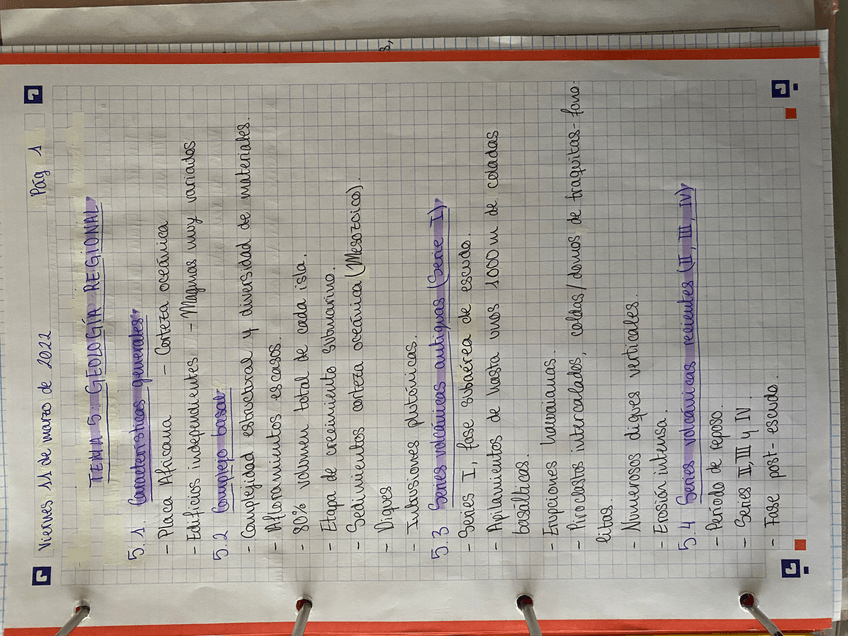 Viernes 11 de marzo de 2022
Pág 1
TEMA 5: GEOLOGÍA REGIONAL
5.1 Características generales
- Placa Africana - Corteza oceánica
- Edificios independientes - Magmas muy variados
5.2 Complejo basal
- Complejidad estructural y diversidad de materiales.
- Afloramientos escasos.
- 80% volumen total de cada isla.
- Etapa de crecimiento submarino.
- Sedimentos corteza oceánica (Mesozoico).
- Diques
- Intrusiones plutónicas.
5.3 Series volcánicas antiguas (Serie I)
- Series I, fase subaérea de escudo.
- Apilamientos de hasta unos 1000 m de coladas
basálticas.
- Erupciones hawaianas.
- Piroclastos intercalados, coladas/domos de traquitas-fono-
litas.
- Numerosos diques verticales.
- Erosión intensa.
5.4 Series volcánicas recientes (II, III, IV)
- Período de reposo.
- Series II, III y IV
- Fase post-escudo.